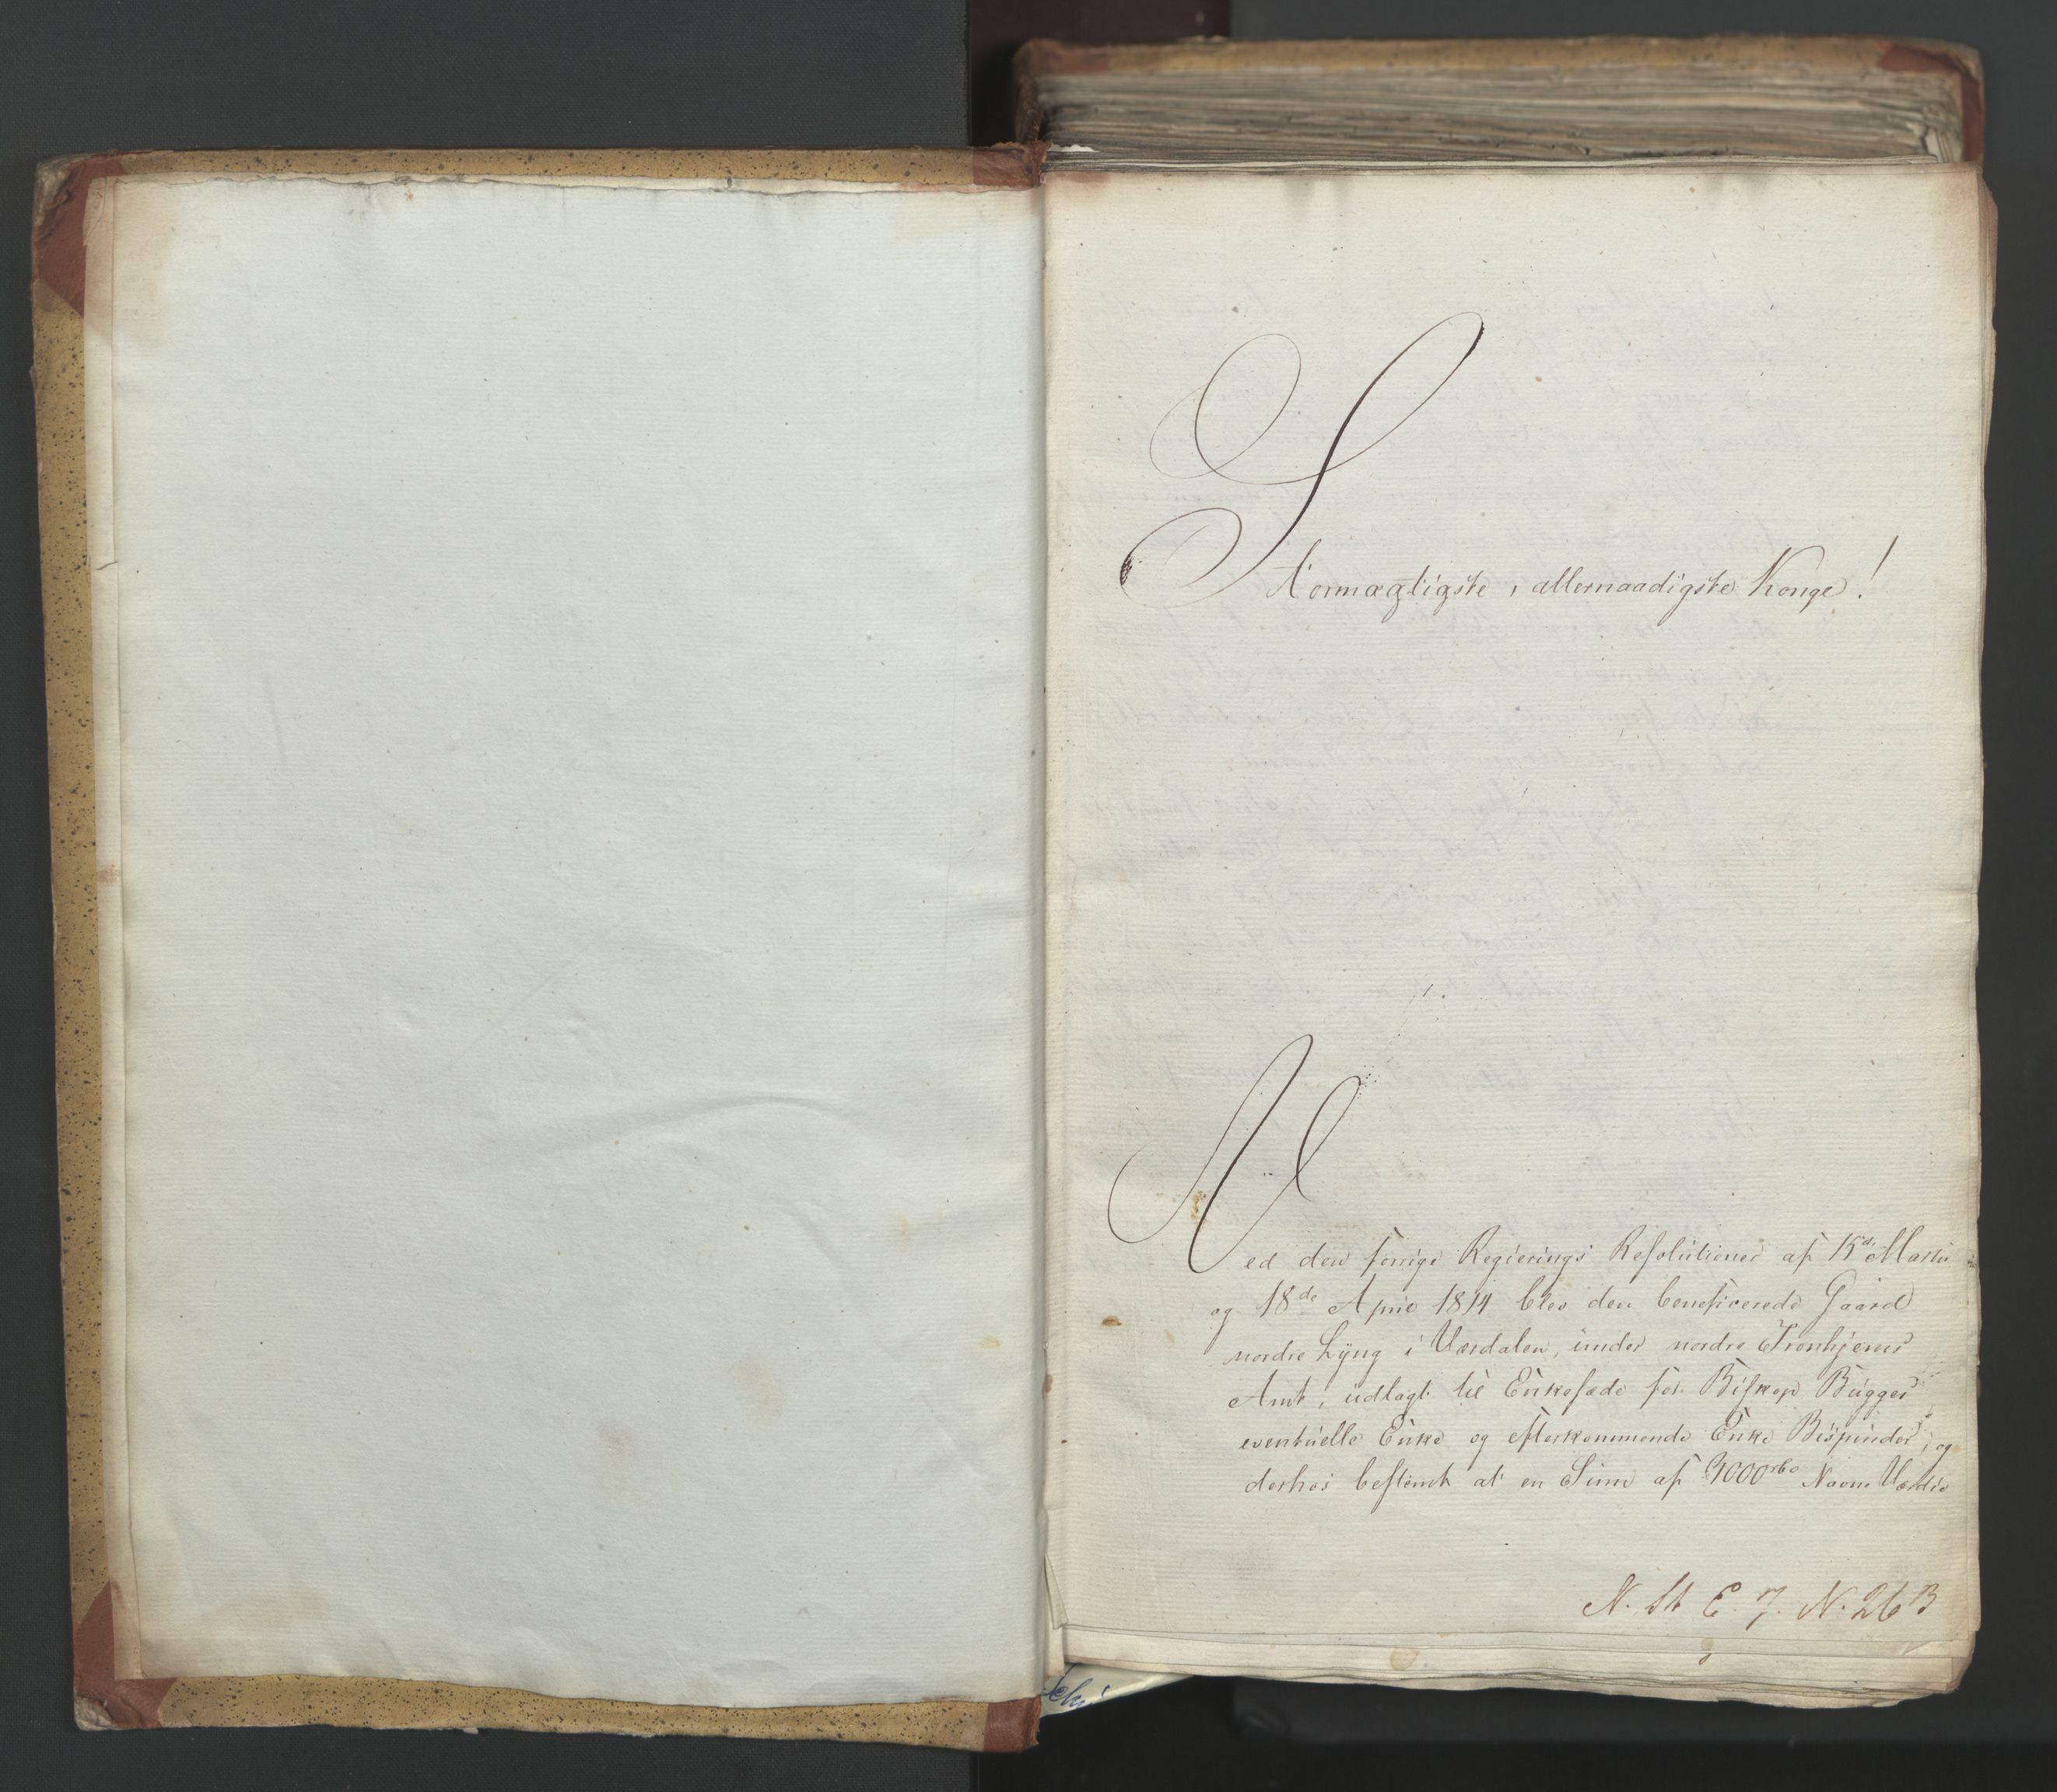 Stormægtigste, allernaadigste Konge!
1.
Ved den forrige Regjerings Resolutioner af 15de Marts
og 18de April 1814 blev den beneficerede Gaard
nordre Lÿng i Værdalen, under nordre Tronhjems
Amt, udlagt til Enkesæde for Biskop Bugges
eventuelle Enke og efterkommende Enke Bispinder, og
derhos bestemt at en Sum af 3000 rbd Navne Værdie
N. St E. 7. N. 26 B